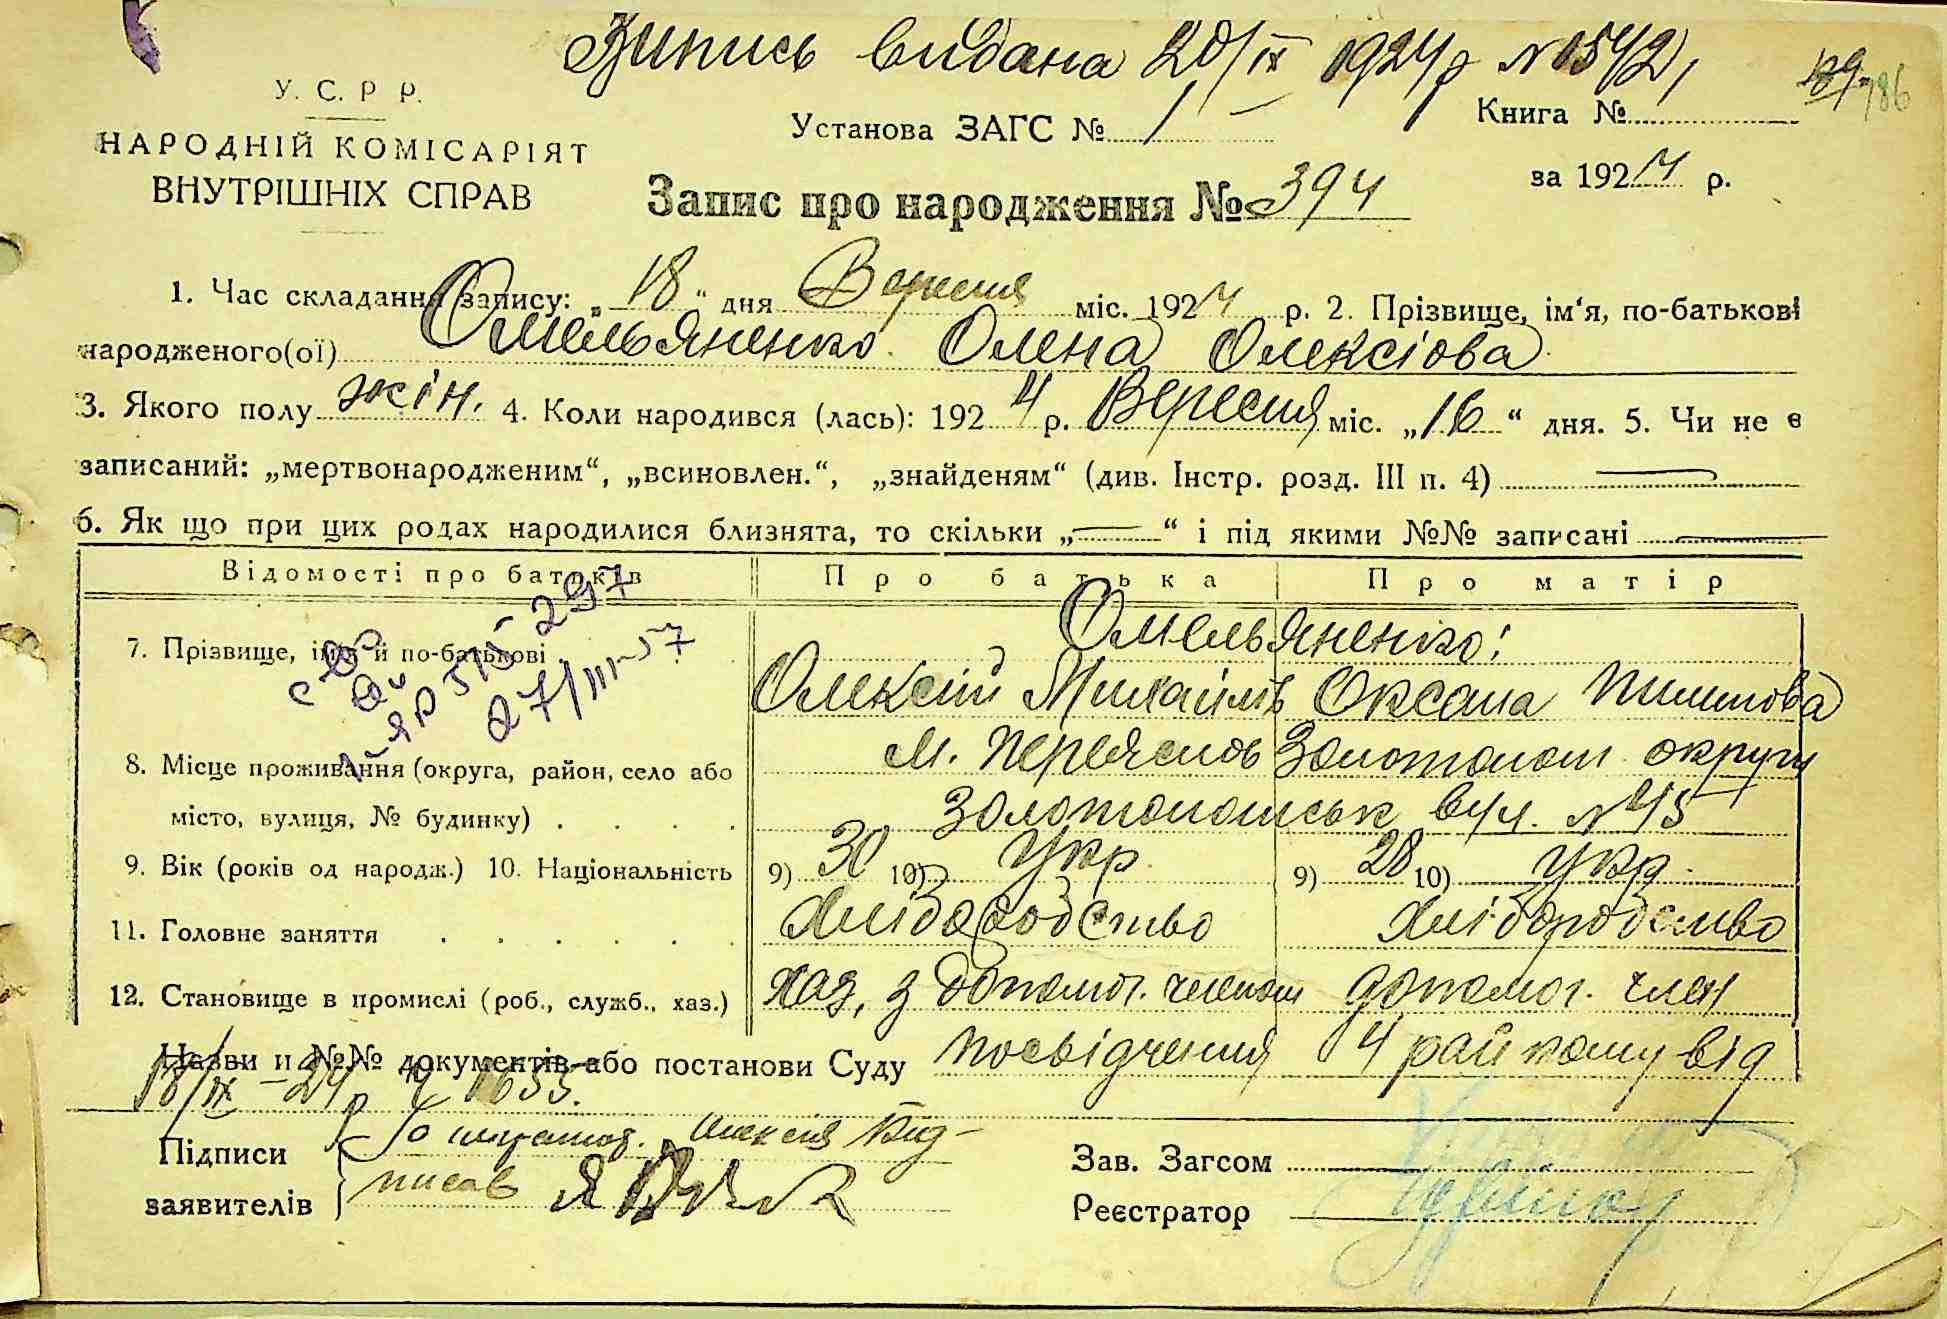 Запись видана 20/IX 1924 р № 1542,
У. С. Р Р.
Установа ЗАГС № 1
Книга №
129
186
НАРОДНІЙ КОМІСАРІЯТ
ВНУТРІШНІХ СПРАВ
за 1924 р.
Запис про народження № 394
1. Час складання запису: „18“ дня Вересня міс. 1924 р. 2. Прізвище, ім‘я, по-батькові
народженого(ої) Омельяненко Олена Олексіова
3. Якого полу жін. 4. Коли народився (лась): 1924 р. Вересня міс. „16“ дня. 5. Чи не є
записаний: „мертвонародженим“, „всиновлен.“, „знайденям“ (див. Інстр. розд. III п. 4) —
6. Як що при цих родах народилися близнята, то скільки „—“ і під якими №№ записані —
Відомості про батьків Про батька Про матір
7. Прізвище, ім‘я й по-батькові Омельяненко:
Олексій Михайлів Оксана Пилипова
8. Місце проживання (округа, район, село або м. Переяслов Золотонош округи
місто, вулиця, № будинку) Золотоношськ вул. № 45
9. Вік (років од народж.) 10. Національність 9) 30 10) Укр 9) 28 10) Укр.
11. Головне заняття Хліборобство Хліборобство
12. Становище в промислі (роб., служб., хаз.) хаз, з допомог. членом допомог. член
297
27/III-57
Назви и №№ документів або постанови Суду посвідчення 4 райкому від
18/IX-24 р
Підписи
заявителів
Олексія Під-
писав
Зав. Загсом
Реєстратор